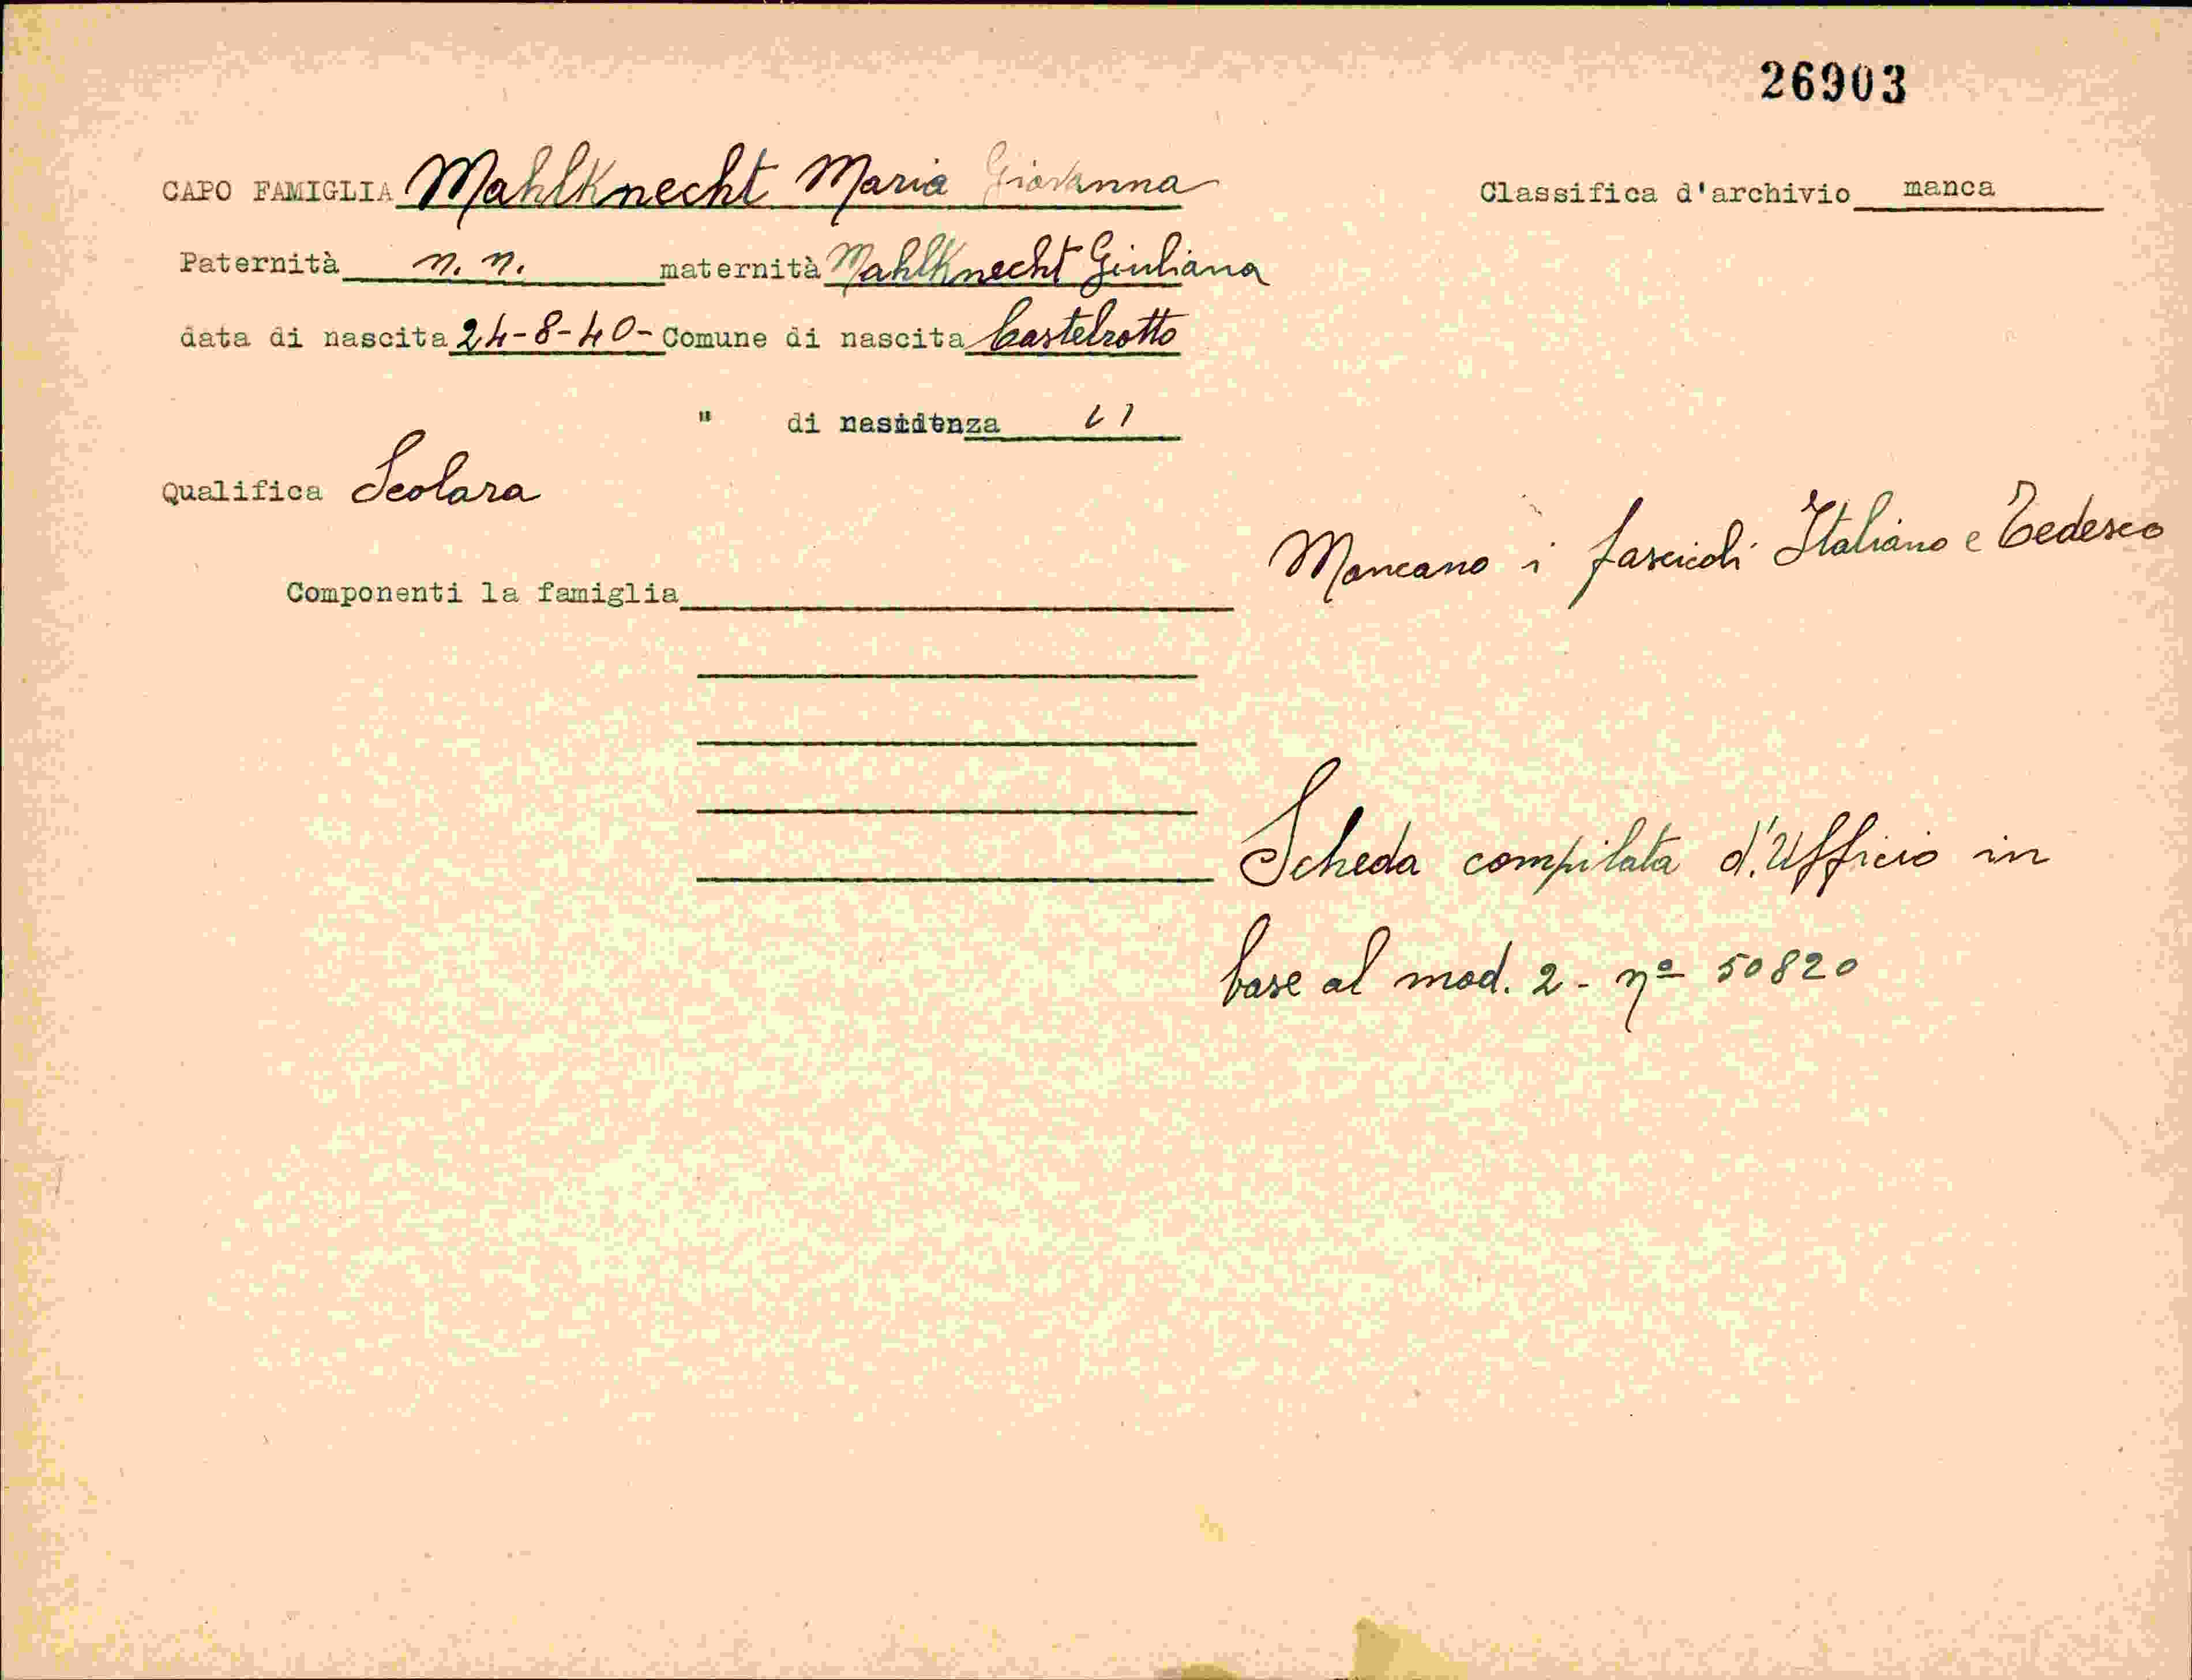 26903
CAPO FAMIGLIA Mahlknecht Maria Giovanna
Classifica d'archivio manca
Paternità n. n. maternità Mahlknecht Giuliana
data di nascita 24-8-40- Comune di nascita Castelrotto
" di residenza "
Qualifica Scolara
Mancano i fascicoli Italiano e Tedesco
Componenti la famiglia
Scheda compilata d'Ufficio in
base al mod. 2 - nº 50820